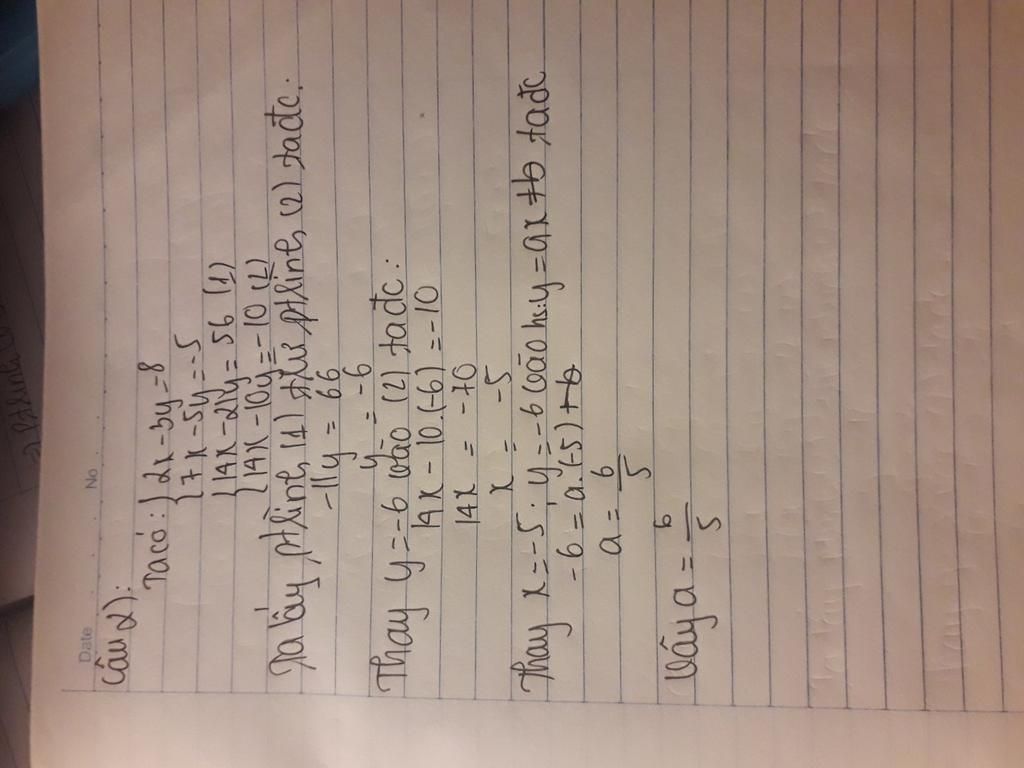 Date No
Câu 2):
Ta có: { 2x - 3y = 8
{ 7x - 5y = -5
{ 14x - 21y = 56 (1)
{ 14x - 10y = -10 (2)
Ta lấy phtìne, (1) trừ phtìne, (2) ta đc.
-11y = 66
y = -6
Thay y = -6 vào (2) ta đc:
14x - 10.(-6) = -10
14x = -70
x = -5
Thay x = -5. y = -6 vào hs: y = ax + b ta đc
-6 = a.(-5) + b
a = 6/5
Vậy a = 6/5